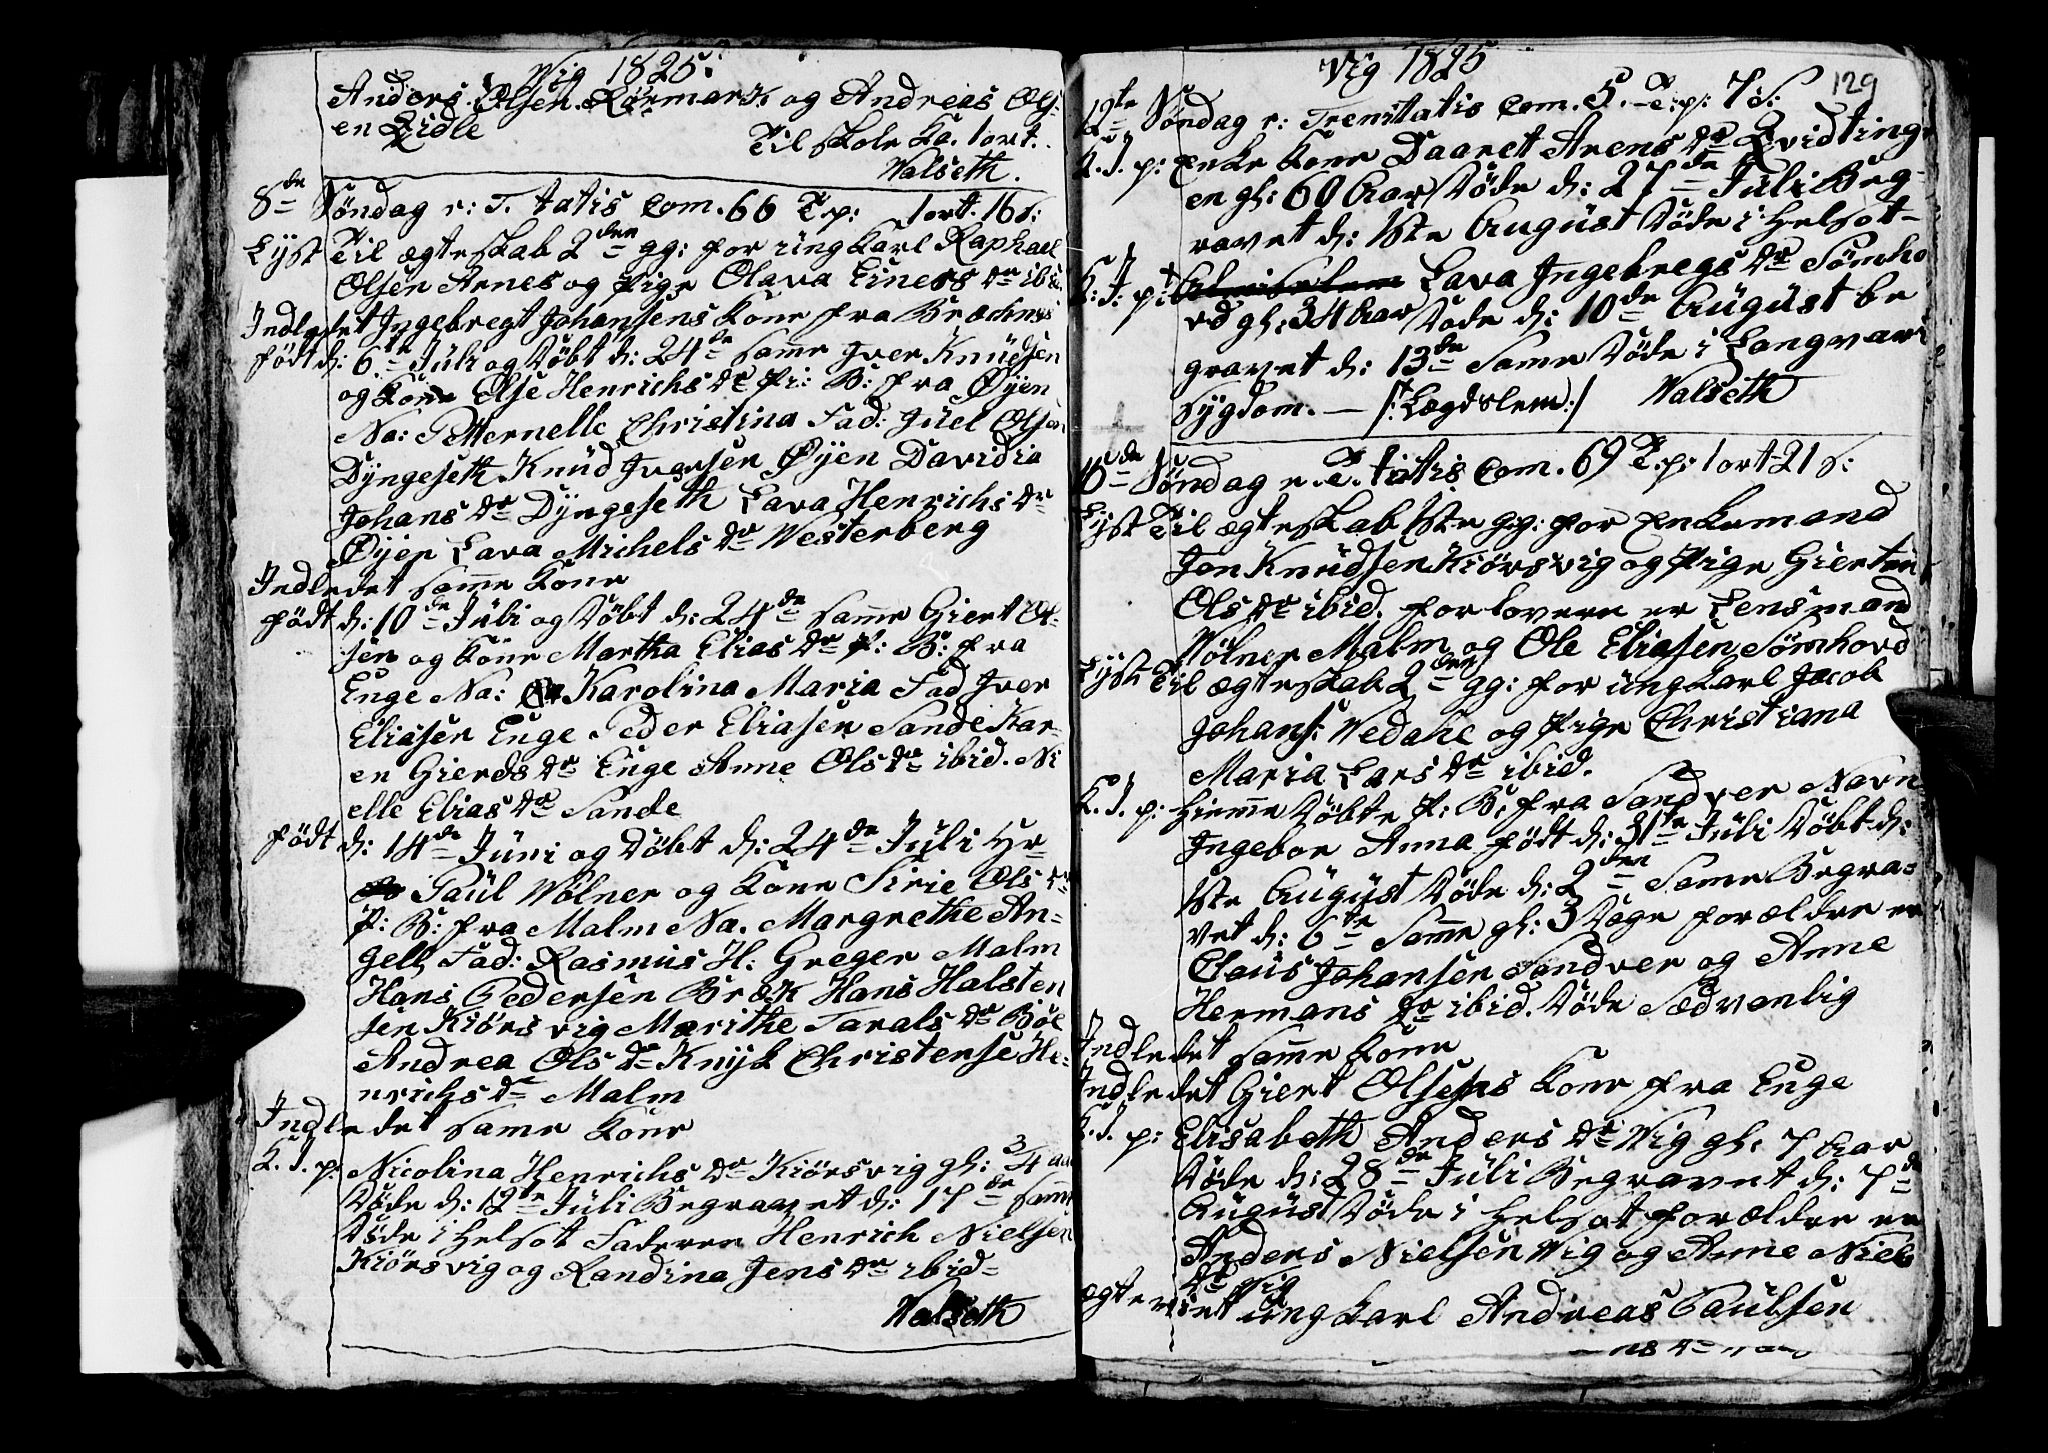 Wig 1825.
Anders Olsen Rørmark og Andreas Ols-
en Eidle
Til Skole Ka. 1 ort.
Walseth.
8de Søndag e: T. tatis Com. 66 T.p: 1 ort. 16 s:
Lyst Til ægteskab 2den gg: for ungkarl Raphael
Olsen Arnes og Pige Olava Einersdr ibi
Indledet Ingebregt Johansens Kone fra Brechnes
født d: 6te Juli og Døbt d: 24de Same Iver Knudsen
og Kone Else Henrichsdr Pi: B: fra Øyen
Na: Petternelle Christina Fad: Juel Olsen
Dyngeseth Knud Iversen Øyen Davidia
Johansdr Dyngeseth Lava Henrichsdr
Øyen Lava Michelsdr Westerberg
Indledet Same Kone
født d: 10de Juli og Døbt d: 24de Same Giert Ol-
sen og Kone Martha Eliasdr P: B: fra
Enge Na: Karolina Maria Fad Iver
Eliasen Enge Peder Eliasen Sande Kar-
en Gierdsdr Enge Anne Olsdr ibid. Ni
elle Eliasdr Sande
født d: 14de Juni og Døbt d: 24de Juli Hr-
Paul Wølner og Kone Sirie Olsdr
P: B: fra Malm Na. Margrethe An-
gell Fad: Rasmus H: Greger Malm
Hans Pedersen Bræk Hans Halsten
sen Kiørsvig Marithe Taralsdr Bøe
Andrea Olsdr Knyk Christense He-
nrichsdr Malm
Indledet Same Kone
K. J. p: Nicolina Henrichsdr Kiørsvig gl: 3/4 aar
Døde d: 12te Juli Begravet d: 17de Same
Døde i Helsot Faderen Henrich Nielsen
Kiørsvig og Randina Jensdr ibid-
Walseth
Vig 1825
129
12te Søndag e: Trenitatis Com. 5. T:p: 7 s:
K. J. p: Enke Kone Daaret Arensdr Qvidting-
en gl: 60 Aar Døde d: 27de Juli Beg-
ravet d: 1ste August Døde i Helsot-
K: J: p: Lava Ingebregsdr Sømho
vd gl: 34 Aar Døde d: 10de August be
gravet d: 13de Same Døde i Langvari
Sygdom. — /: Lægdslem :/ Walseth
Søndag e. T. tatis Com. 69 T.p: 1 ort 21 s:
Lyst Til ægteskab 1ste gg: for Enkemand
Jon Knudsen Kiørsvig og Pige Giertru
Olsdr ibid. forlovere er Lensmand
Wølner Malm og Ole Eliasen Sømhovd
Lyst Til ægteskab 2den gg: for ungkarl Jacob
Johans: Wedahe og Pige Christiana
Maria Larsdr ibid.
K. J. p: Hieme Døbte P: B: fra Sandver Navn
Ingebor Anna født d: 31te Juli Døbt d:
1ste August Døde d: 2den Same Begra-
vet d: 6te Same gl: 3 Dage forældre er
Claus Johansen Sandver og Anne
Hermansdr ibid. Døde Sædvanlig
Indledet Same Kone
Indledet Giert Olsens Kone fra Enge
K. J. p: Elisabeth Andersdr Wig gl: 7 Aar
Døde d: 28de Juli Begravet d: 7de
August Døde i Helsot forældre er
Anders Nielsen Wig og Anne Niels
dr Vig
ægteviet ungkarl Andreas Paulsen